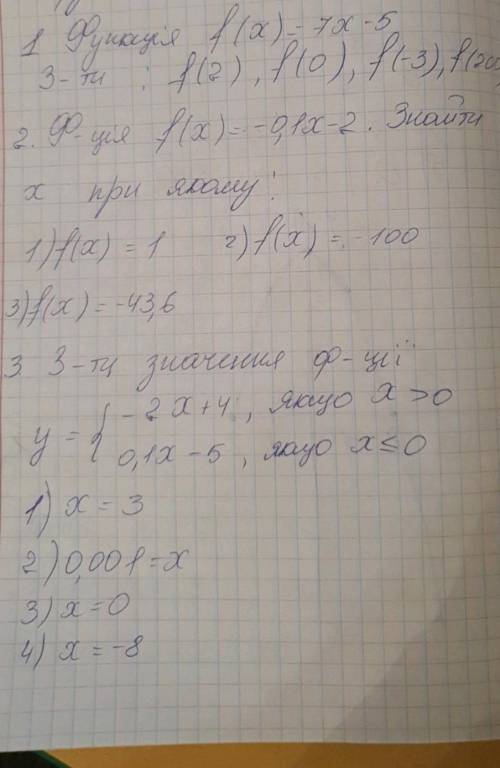 1 Функція f(x) = 7x - 5
З-ти : f(2), f(0), f(-3), f(20
2. Ф-ція f(x) = -0,1x - 2. Знайти
x при якому:
1) f(x) = 1 2) f(x) = -100
3) f(x) = -43,6
3 З-ти значення ф-ції
y = { -2x+4, якщо x > 0
0,1x - 5, якщо x ≤ 0
1) x = 3
2) 0,001 = x
3) x = 0
4) x = -8